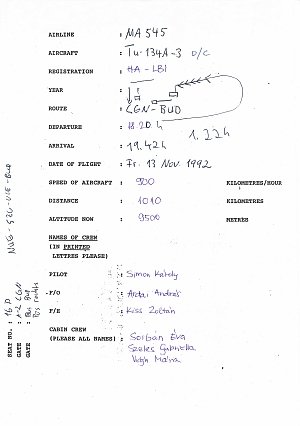 AIRLINE : MA 545
AIRCRAFT : Tu-134A-3 O/C
REGISTRATION : HA-LBI
YEAR :
ROUTE : CGN-BUD
DEPARTURE : 18.20 h
1.22h
ARRIVAL : 19.42h
DATE OF FLIGHT : Fr. 13 Nov 1992
SPEED OF AIRCRAFT : 900 KILOMETRES/HOUR
DISTANCE : 1010 KILOMETRES
ALTITUDE NOW : 9500 METRES
NAMES OF CREW :
(IN PRINTED
LETTRES PLEASE)
PILOT : Simon Károly
F/O : Antal András
F/E : Kiss Zoltán
CABIN CREW
(PLEASE ALL NAMES) : Sorbán Éva
Szeles Gabriella
Végh Mária
SEAT NO. : 16 D
GATE : A-2 CGN
GATE : Bus Bud
Pos